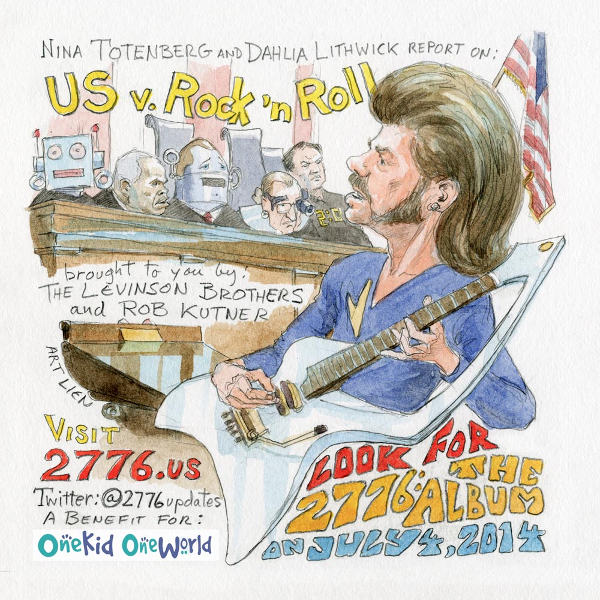 NINA TOTENBERG AND DAHLIA LITHWICK REPORT ON:
US v. Rock 'n Roll
brought to you by:
THE LEVINSON BROTHERS
and ROB KUTNER
ART LIEN
VISIT
2776.US
Twitter: @2776updates
A BENEFIT FOR:
OneKid OneWorld
LOOK FOR
THE
2776: ALBUM
ON JULY 4, 2014